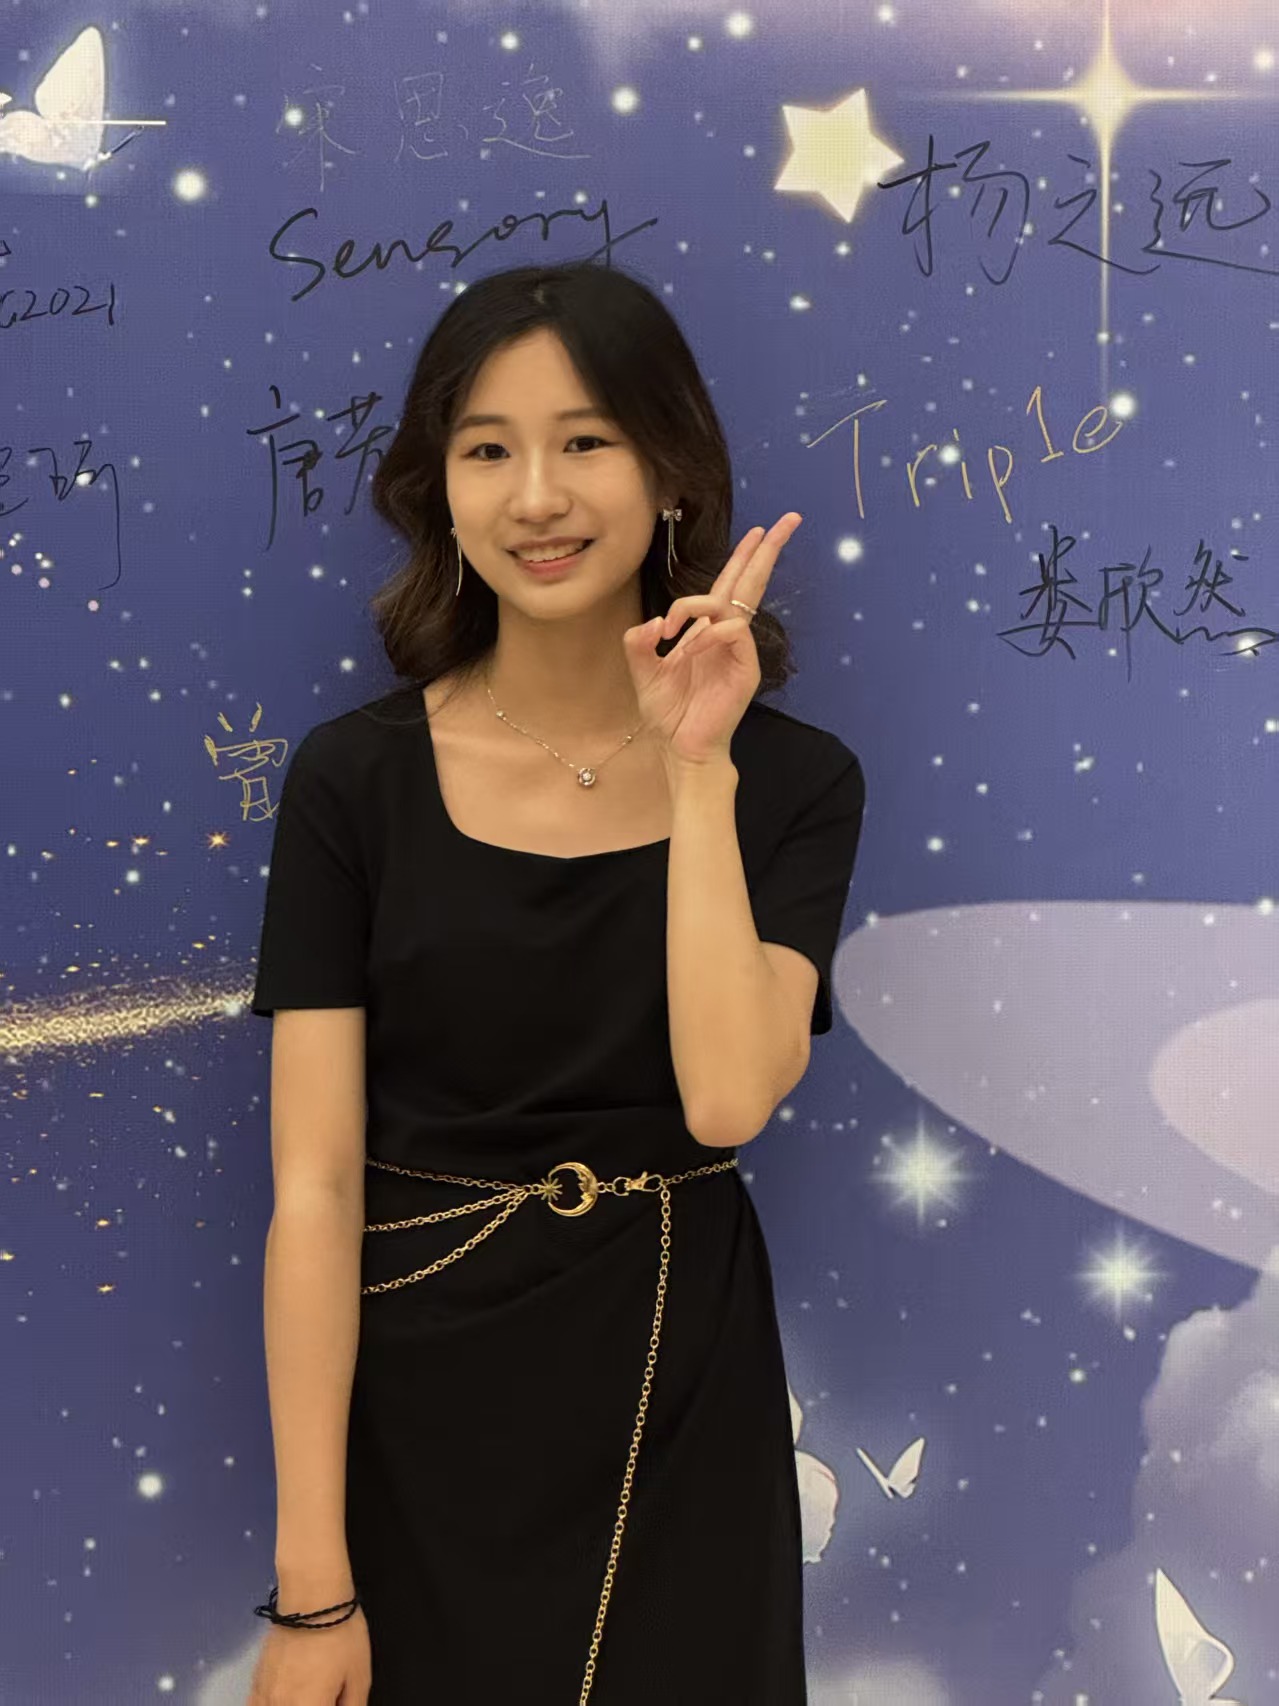 宋思逸
Sensory
杨之远
2021
唐芳
Triple
娄欣然
曾